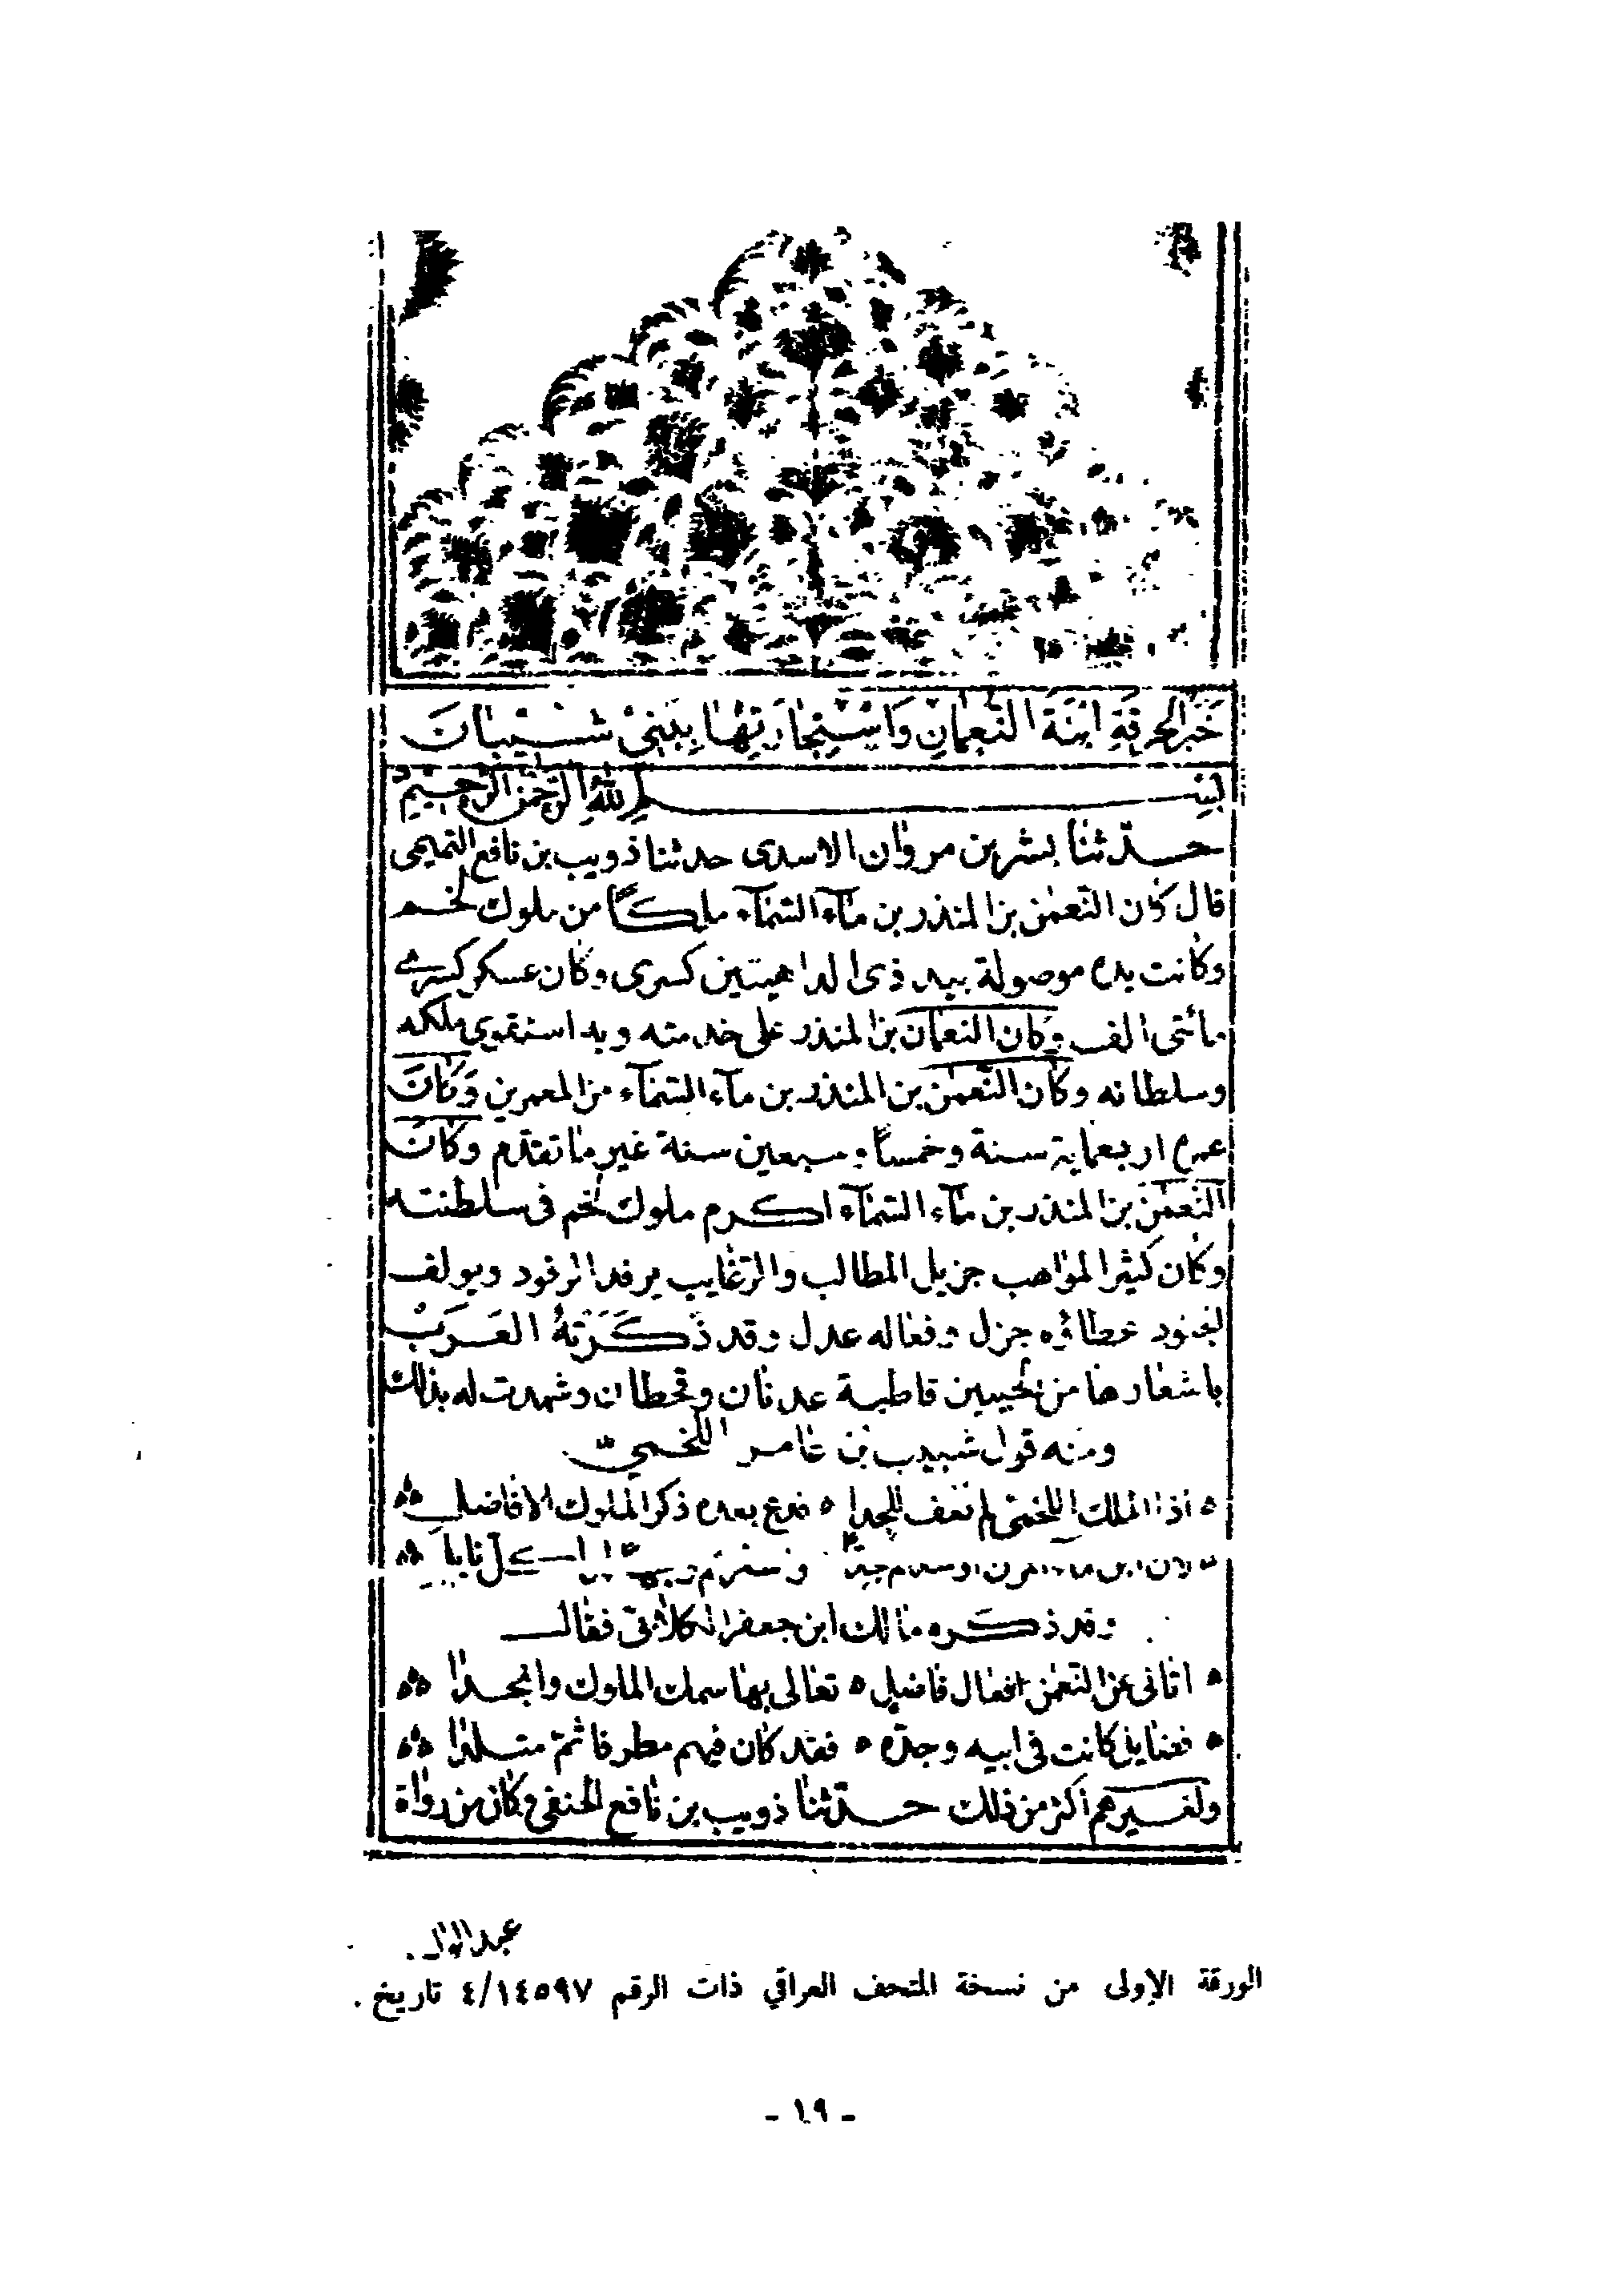 خَبَرُ الحُرقَةِ ابْنَةَ النُّعمَانِ وَاسْتِجَارَتِهَا بِبَنِي شَيْبَانَ
بسم الله الرحمن الرحيم
حدّثنا بشر بن مروان الاسدى حدثنا ذويب بن نافع التميمى
قال كان النعمن بن المنذر بن مآء السمآء ملكاً من ملوك لخم
وكانت يده موصولة بيد ذى الداهيتين كسرى وكان عسكر كسرى
مأتى الف وكان النعمان بن المنذر على خدمته وبه استقوى ملكه
وسلطانه وكان النعمن بن المنذر بن مآء السمآء من المعمرين وكان
عمره اربعماية سنة وخمساً وسبعين سنة غير ما تقدم وكان
النعمن بن المنذر بن مآء السمآء اكرم ملوك لخم فى سلطنته
وكان كثير المواهب جزيل المطالب والرغايب يرفد المرفود ويولف
الجنود عطاؤه جزل وفعاله عدل وقد ذَكَرَتهُ العَرَبْ
باشعارها من الحيين قاطبة عدنان وقحطان وشهدت له بذلك
ومنه قول شبيب بن عامر اللخميّ
اذا الملك اللخمى لم تعف المجدا ۞ فدع بعده ذكر الملوك الافاضل
وقد ذكره مالك ابن جعفر الكلابى فقال
اتانى عن النعمن افعال فاضل ۞ تعالى بها سمك الملوك وانجدا
فعنايل كانت فى ابيه وجده ۞ فقد كان فيهم مطرفا ثم متلدا
ولغيرهم اكثر من ذلك حدّثنا ذويب بن نافع الحنفى وكان من رواة
الورقة الاولى من نسخة المتحف العراقي ذات الرقم ٤/١٤٥٩٧ تاريخ .
- ١٩ -